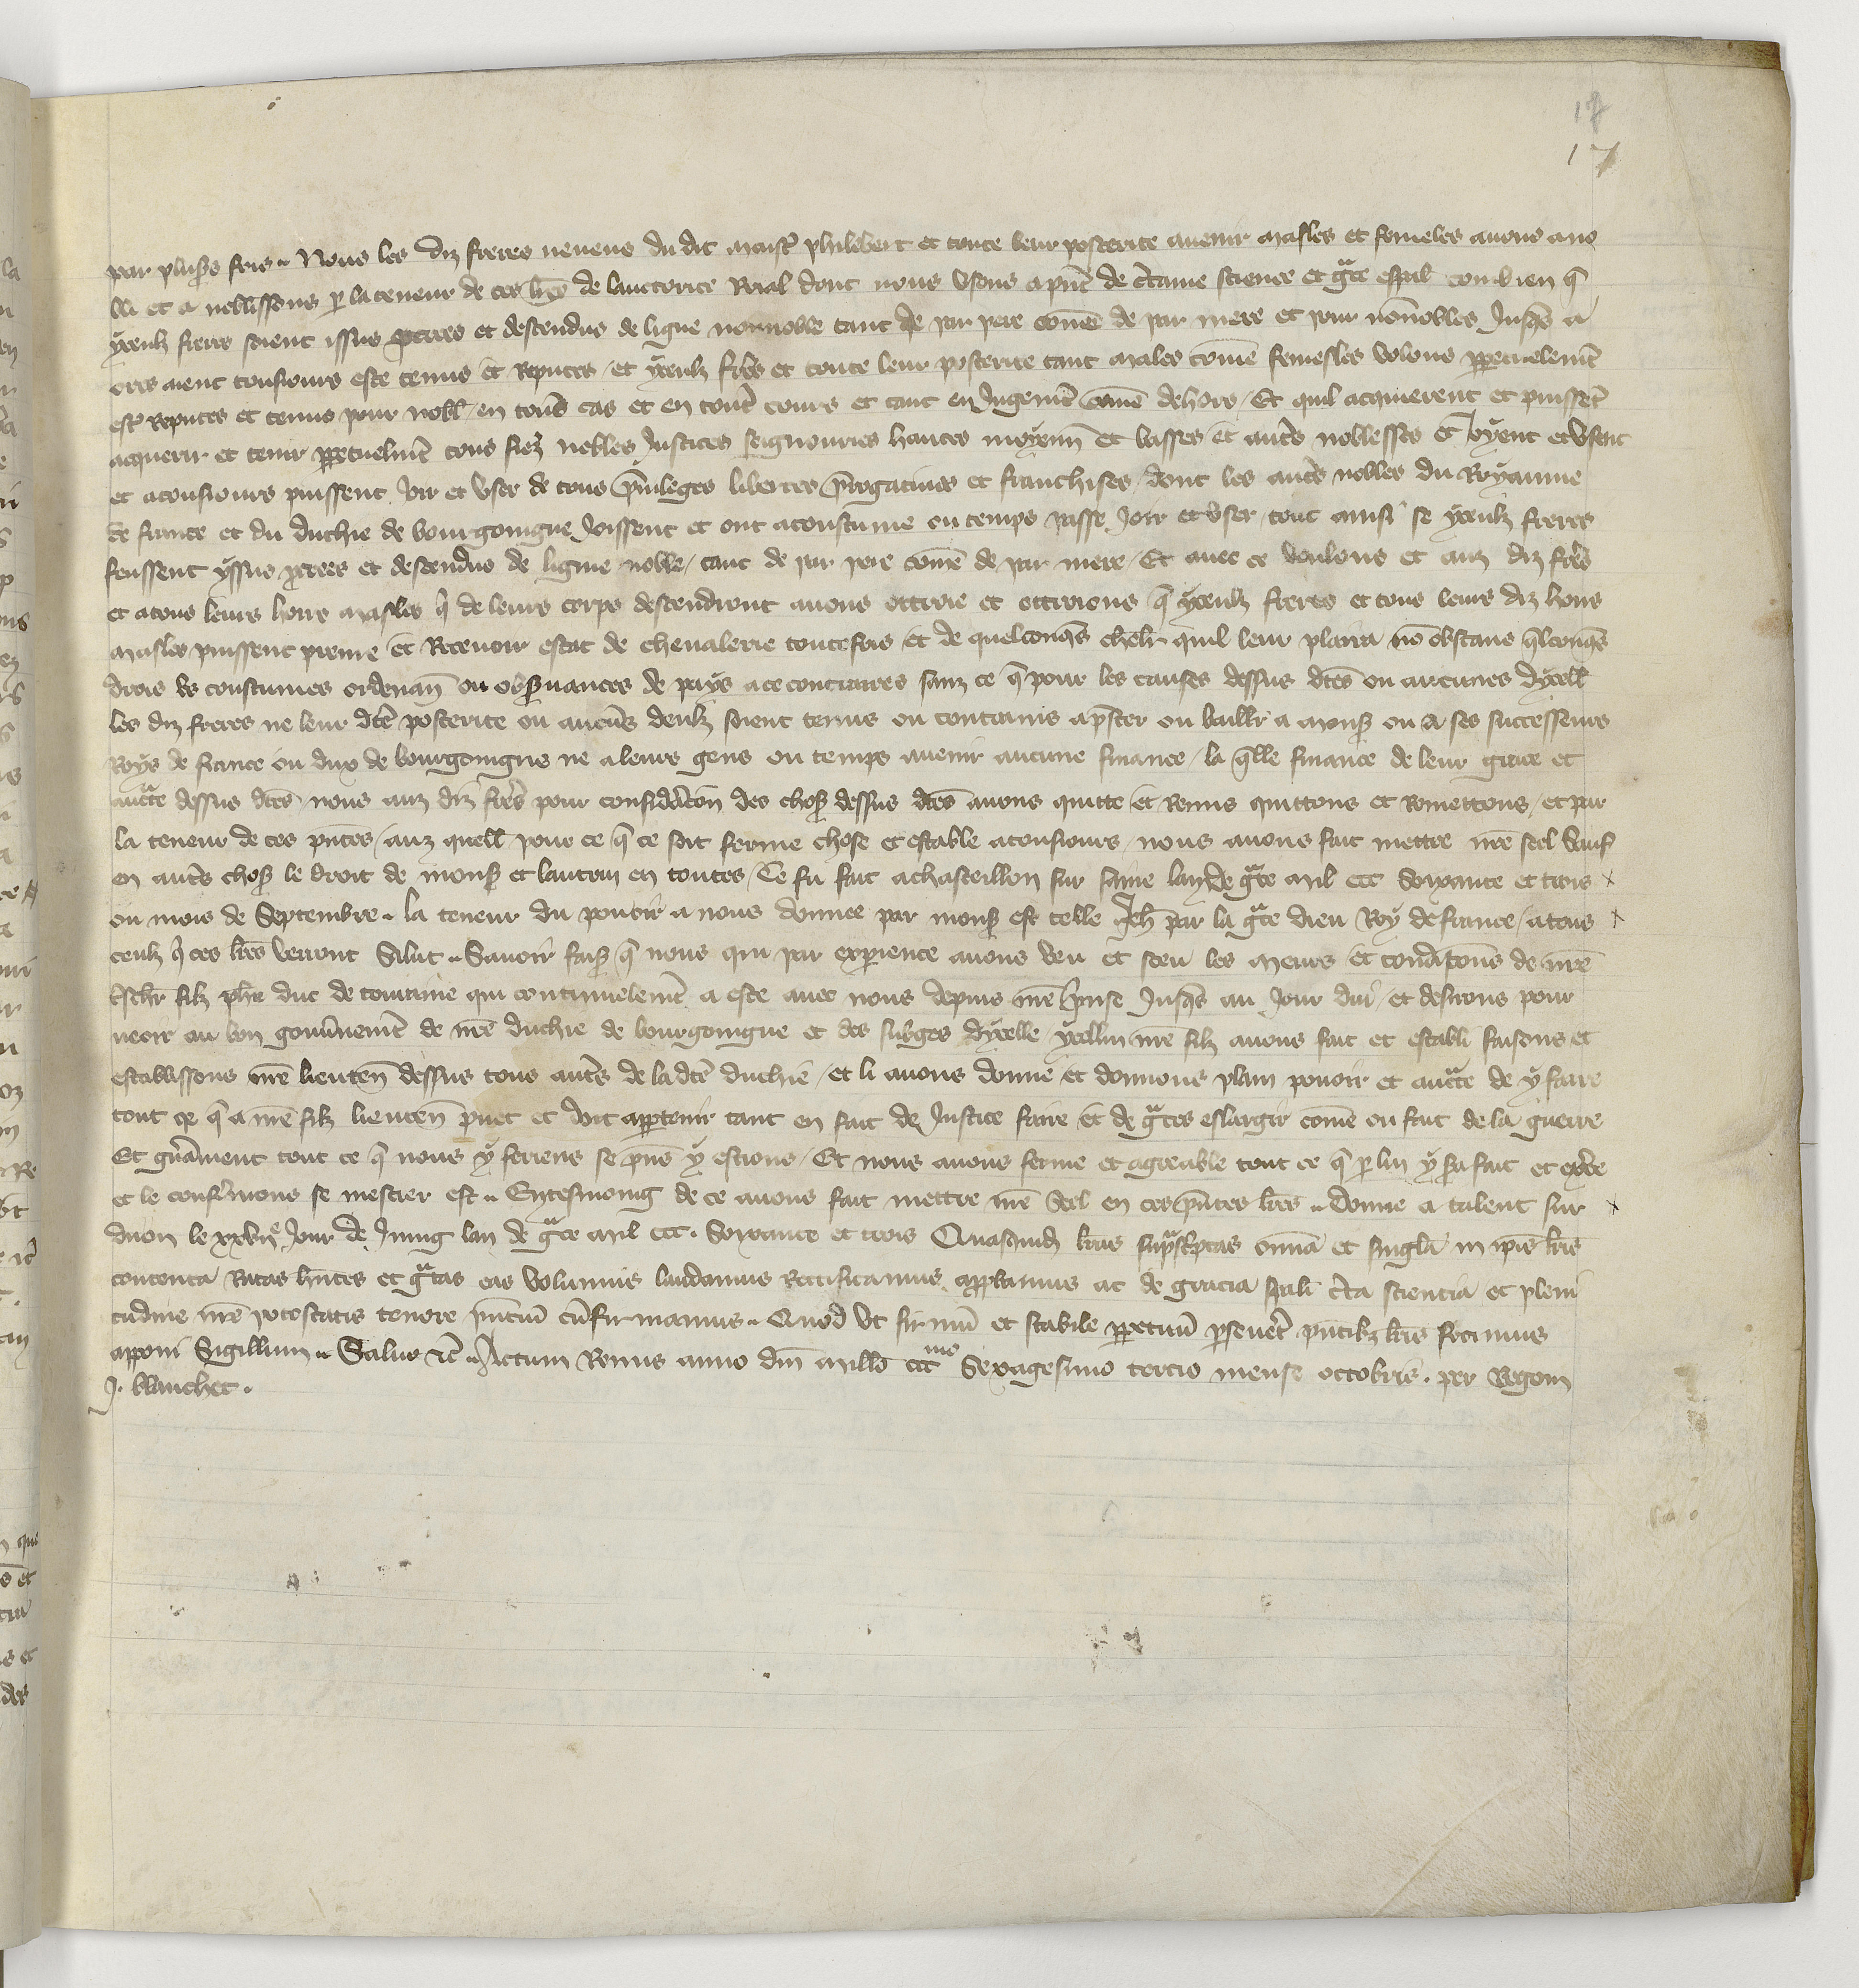 17
17
par plusrs fois .. Nous les diz freres neveus du dit maistr philebert et toute leur posterite avenir masles et femeles avons ano
bli et a nobllissons p la teneur de ces lres de lauctorite Roial dont nous Usons apnt de ctaine science et gce espal combien q
yceulz freres soient issus pcrees et descendus de ligne nonnoble tant de par pere come de par mere et pour nonnobles Jusqs a
ores aient tousiours este tenus et Reputes / et yceulz frers et toute leur posterite tant males come femesles Volons ppetuelemt
estr Reputes et tenus pour nobl / en tous cas et en toutes cours et tant en Jugemt come dehors / Et quil acquierent et puisset
acquerir et tenir ppetuelmt tous fiez nobles Justices seignouries hautes moyenn et basses et autrs noblesses et Joyent et Usent
et atousiours puissent Joir et User de tous pvileges libertes progatives et franchises / dont les autrs nobles du Royaume
de france et du duchie de bourgoingne Joissent et ont acoustume ou temps passe Joir et User tout ainsi se yceulz freres
feussent yssus pcrees et descendus de ligne noble / tant de par pere come de par mere / Et avec ce voulons et auz diz frers
et atous leurs hoirs masles q de leurs corps descendront avons ottroie et ottroions q yceulz freres et tous leurs diz hoirs
masles puissent prenre et Recevoir estat de chevalerie toutefois et de quelconqs chelr quil leur plaira no obstans qlconqs
drois Us coustumes ordenan ou obsvances de pays ace contraires sanz ce q pour les causes dessus dtes ou aucunes dycell
les diz freres ne leur dte posterite ou aucuns deulz soient tenus ou contrains a pster ou baillr a mons ou a ses successeurs
Roys de france ou dux de bourgoingne ne a leurs gens ou temps avenir aucune finance / la qlle finance de leur grace et
aucte dessus dtes nous auz diz frers pour considacon des chos dessus dtes avons quitte et Remis quittons et Remettons / et par
la teneur de ces pntes / auz quell pour ce q ce soit ferme chose et estable atousiours nous avons fait mettre nre scel Sauf
en autrs chos le droit de mons et lautrui en toutes / Ce fu fait achasteillon sur saine lan de gce mil ccc soixante et trois
ou mois de Septembre .. la teneur du pouoir a nous donnee par mons est telle Jeh par la gce dieu Roy de france / a tous
ceulz q ces lres verront Salut .. Savoir fais q nous qui par expience avons veu et sceu les meurs et condicons de nre
tschr filz phe duc de touraine qui continuelemt a este avec nous depuis nre prinse Jusqs au Jour dui / et desirons pour
veoir au bon gouvnemt de nre duchie de bourgoingne et des subges dycelle / ycellui nre filz avons fait et establi faisons et
establissons nre lieuten dessus tous autrs de la dte duchie / et li avons donne et donnons plain pouoir et aucte de y faire
tout ce q a nre filz lieuten puet et doit apptenir tant en fait de Justice faire et de gces eslargir come ou fait de la guerre
Et gnalment tout ce q nous y feriens se pns y estions / Et nous avons ferme et agreable tout ce q p lui y sa fait et exce
et le confrmons se mestier est .. En tesmoing de ce avons fait mettre nre Scel en ces pntes lres .. donne a talent sur
duon le xxvije Jour de Juing lan de gce mil ccc . Soixante et trois Quasquid lras supscptas omia et singla in ipis lris
contenta Ratas hntes et gtas eas Volumus laudamus Rattificamus appbamus ac de gracia spali cta scientia et pleni
tudine nre potestatis tenore pntium confirmamus .. Quod Ut firmu et stabile ppetuu psevert pntibz lris fecimus
apponi Sigillum .. Salvo etc .. Actum Remis anno dni millo ccc mo Sexagesimo tercio mense octobris . per Regem
J . blanchet .